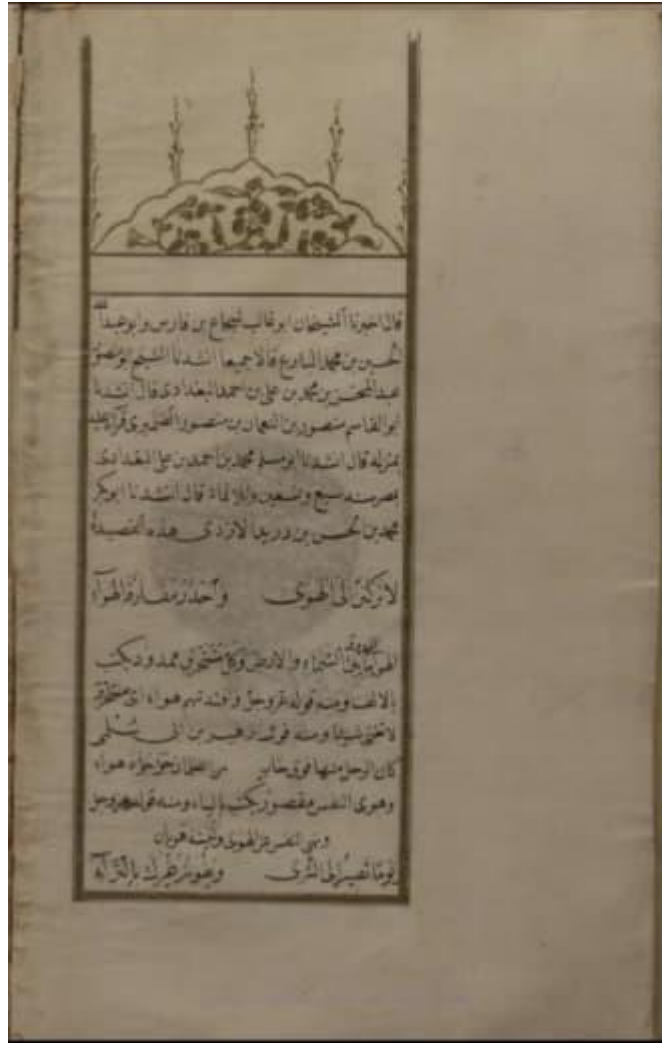 قال اخبرنا الشيخان ابو غالب شجاع بن فارس وابو عبدالله
الحسين بن محمد البارع قالا جميعا انشدنا الشيخ ابو منصور
عبد المحسن بن محمد بن على بن احمد البغدادى قال انشدنا
ابو القاسم منصور بن النعمان بن منصور الصيمرى قرآة عليه
بمنزله قال انشدنا ابو مسلم محمد بن احمد بن على البغدادى
بمصر سنه سبع وتسعين وثلاثمائة قال انشدنا ابو بكر
محمد بن الحسن بن دريد الازدى هذه القصيدة
لا تركنن الى الهوى واحذر مفارقة الهوآء
الهوآء ما بين السماء والارض وكل منخرق ممدود يكتب
بالالف ومنه قوله عز وجل وافئدتهم هواء اى منخرقة
لا تعى شيئا ومنه قول زهير بن ابى سلمى
كان الرحل منها فوق صعل من الظلمان جؤجؤه هواء
وهوى النفس مقصور يكتب بالياء ومنه قوله عز وجل
ونهى النفس عن الهوى وتثنيته هويان
يوما تصير الى الثرى ويفوز غيرك بالثرآء